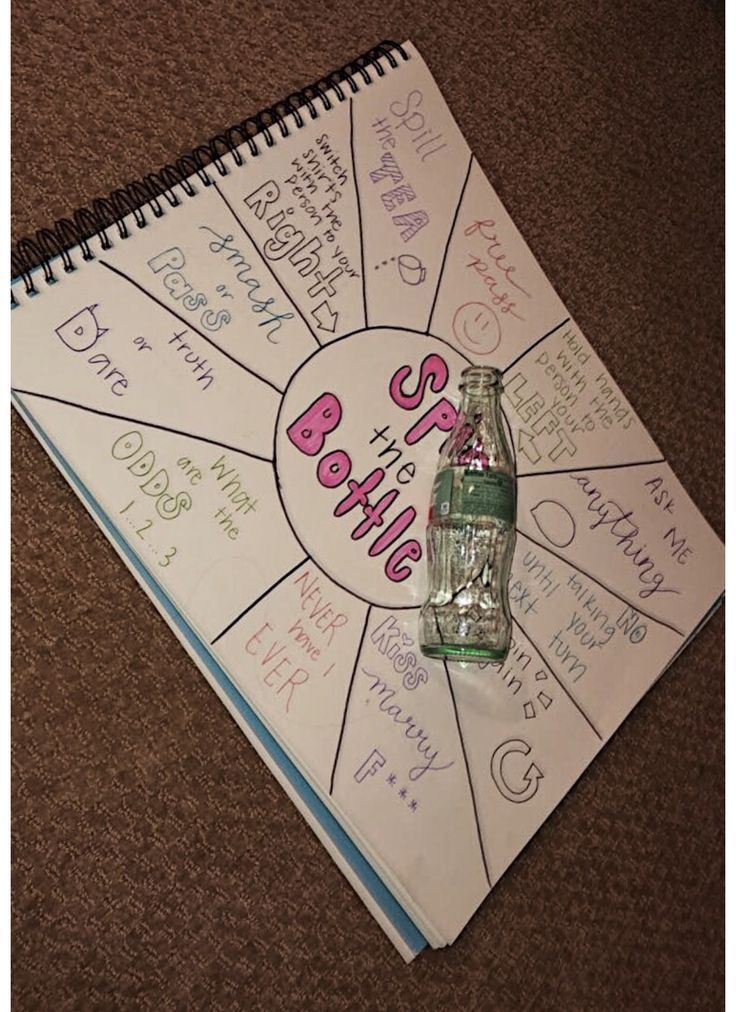 Spin
the
Bottle
Spill
the
TEA
free
pass
Hold hands
with the
person to
your
LEFT
Ask ME
anything
NO
talking
until your
next turn
spin
again
KISS
marry
F***
NEVER
have I
EVER
What
are the
ODDS
1...2...3
truth
or
Dare
smash
or
Pass
switch
shirts
with the
person to your
Right